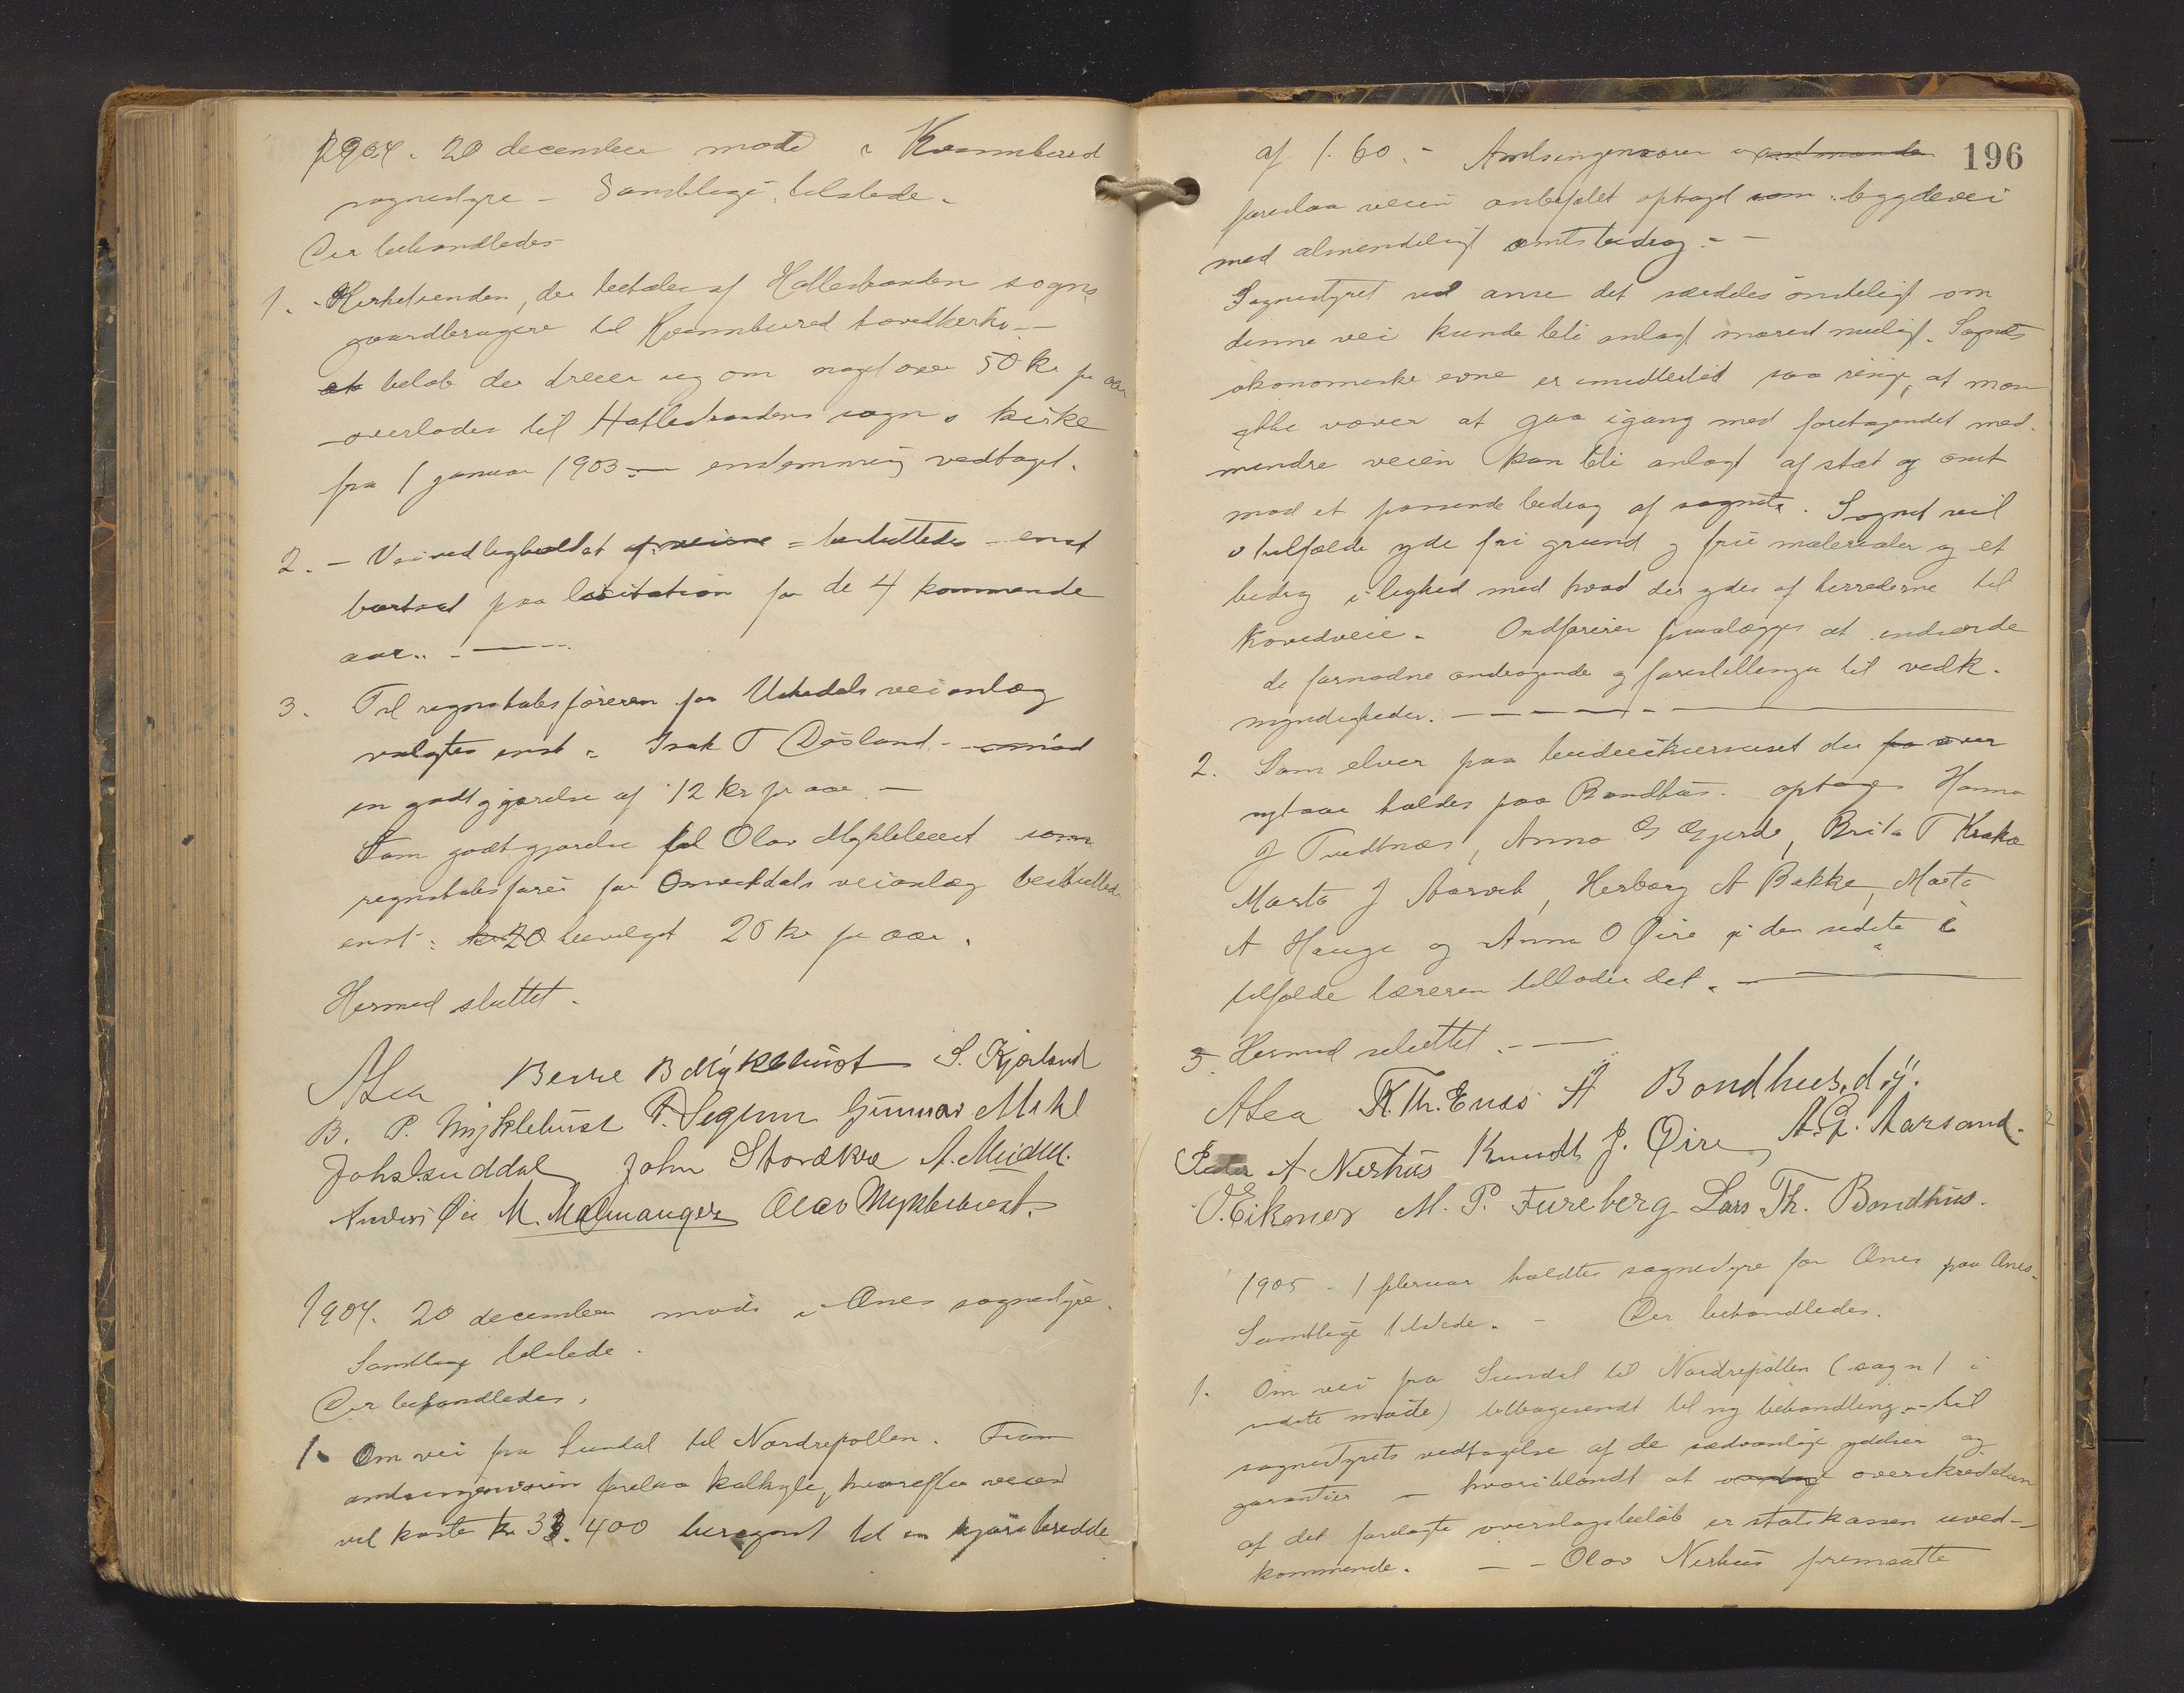 1904. 20 december møde i Kvinnhered
sognestyre - Samtlige tilstede.
Der behandledes
1. Kirketienden, der betales af Hatlestranden sogns
gaardbrugere til Kvinnhered hovedkirke
et beløb der dreier sig om noget over 50 kr pr aar
overlades til Hatlestrandens sogns kirke
fra 1 januar 1903 - enstemmig vedtaget.
2. - Veivedligholdet af veiene = besluttedes enst
bortsat paa licitation for de 4 kommende
aar. - -
3. Til regnskabsføreren for Uskedals veianlæg
valgtes enst. Isak T Døsland - mod
en godtgjørelse af 12 kr pr aar -
Som godtgjørelse til Olav Myklebust som
regnskabsfører for Omvikdals veianlæg besluttedes
enst: kr 20 bevilget 20 kr pr aar.
Hermed sluttet.
ALea Berre B Myklebust S. Kjærland
B. P. Myklebust Gunnar Mehl
Johs Guddal John Storækre A. Meidell.
Anders Øie M. Malmanger Olav Myklebust.
1904. 20 december møde i Ænes sognestyre.
Samtlige tilstede.
Der behandledes.
1. Om vei fra Sundal til Nordrepollen. Fram
amtsingeniøren forelaa kalkyle, hvorefter veien
vil koste kr 33.400 beregnet til en kjørebredde
196
af 1.60. - Amtsingeniøren og amtmanden
foreslaa veien anbefalet optaget som bygdevei
med almindeligt amtsbidrag. -
Sognestyret vil anse det særdeles ønskeligt om
denne vei kunde bli anlagt snarest muligt. Sognets
økonomiske evne er imidlertid saa ringe, at man
ikke vover at gaa igang med foretagendet med-
mindre veien kan bli anlagt af stat og amt
mod et passende bidrag af sognet. Sognet vil
i tilfælde yde fri grund og frie materialer og et
bidrag i lighed med hvad der ydes af herrederne til
hovedveie. - Ordføreren paalægges at indsende
de fornødne andragende og forestillinger til vedk.
myndigheder. - - - -
2. Som elver paa husdikurset der fra over
nytaar holdes paa Bondhus optages Hanna
J Tvedtnæs, Anna G Gjerde, Brita T Kraka
Marta J Aarvik, Herborg A Bakke, Marta
A Hauge og Anna O Øire, den sidste i
tilfælde læreren tillader det. -
3. Hermed sluttet. -
ALea K. Th. Enæs H Bondhus. d.y.
Peder A Nerhus Knudt J. Øire, A. G. Aarsand.
O. Eikenes M. P. Fureberg Lars Th. Bondhus.
1905 - 1 februar holdtes sognestyre for Ænes paa Ænes.
Samtlige tilstede. - Der behandledes.
1. Om vei fra Sundal til Nordrepollen (sag nr 1 i
sidste møde) tilbagesendt til ny behandling - til
sognestyrets vedtagelse af de sædvanlige ydelser og
garantier - hvoriblandt at overskridelsen
af det forelagte overslagsbeløb er statskassen uved-
kommende. - - Olav Nerhus fremsatte